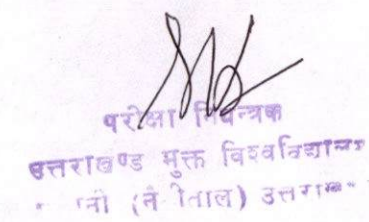 परीक्षा नियन्त्रक
उत्तराखण्ड मुक्त विश्वविद्यालय
(नैनीताल) उत्तराखण्ड